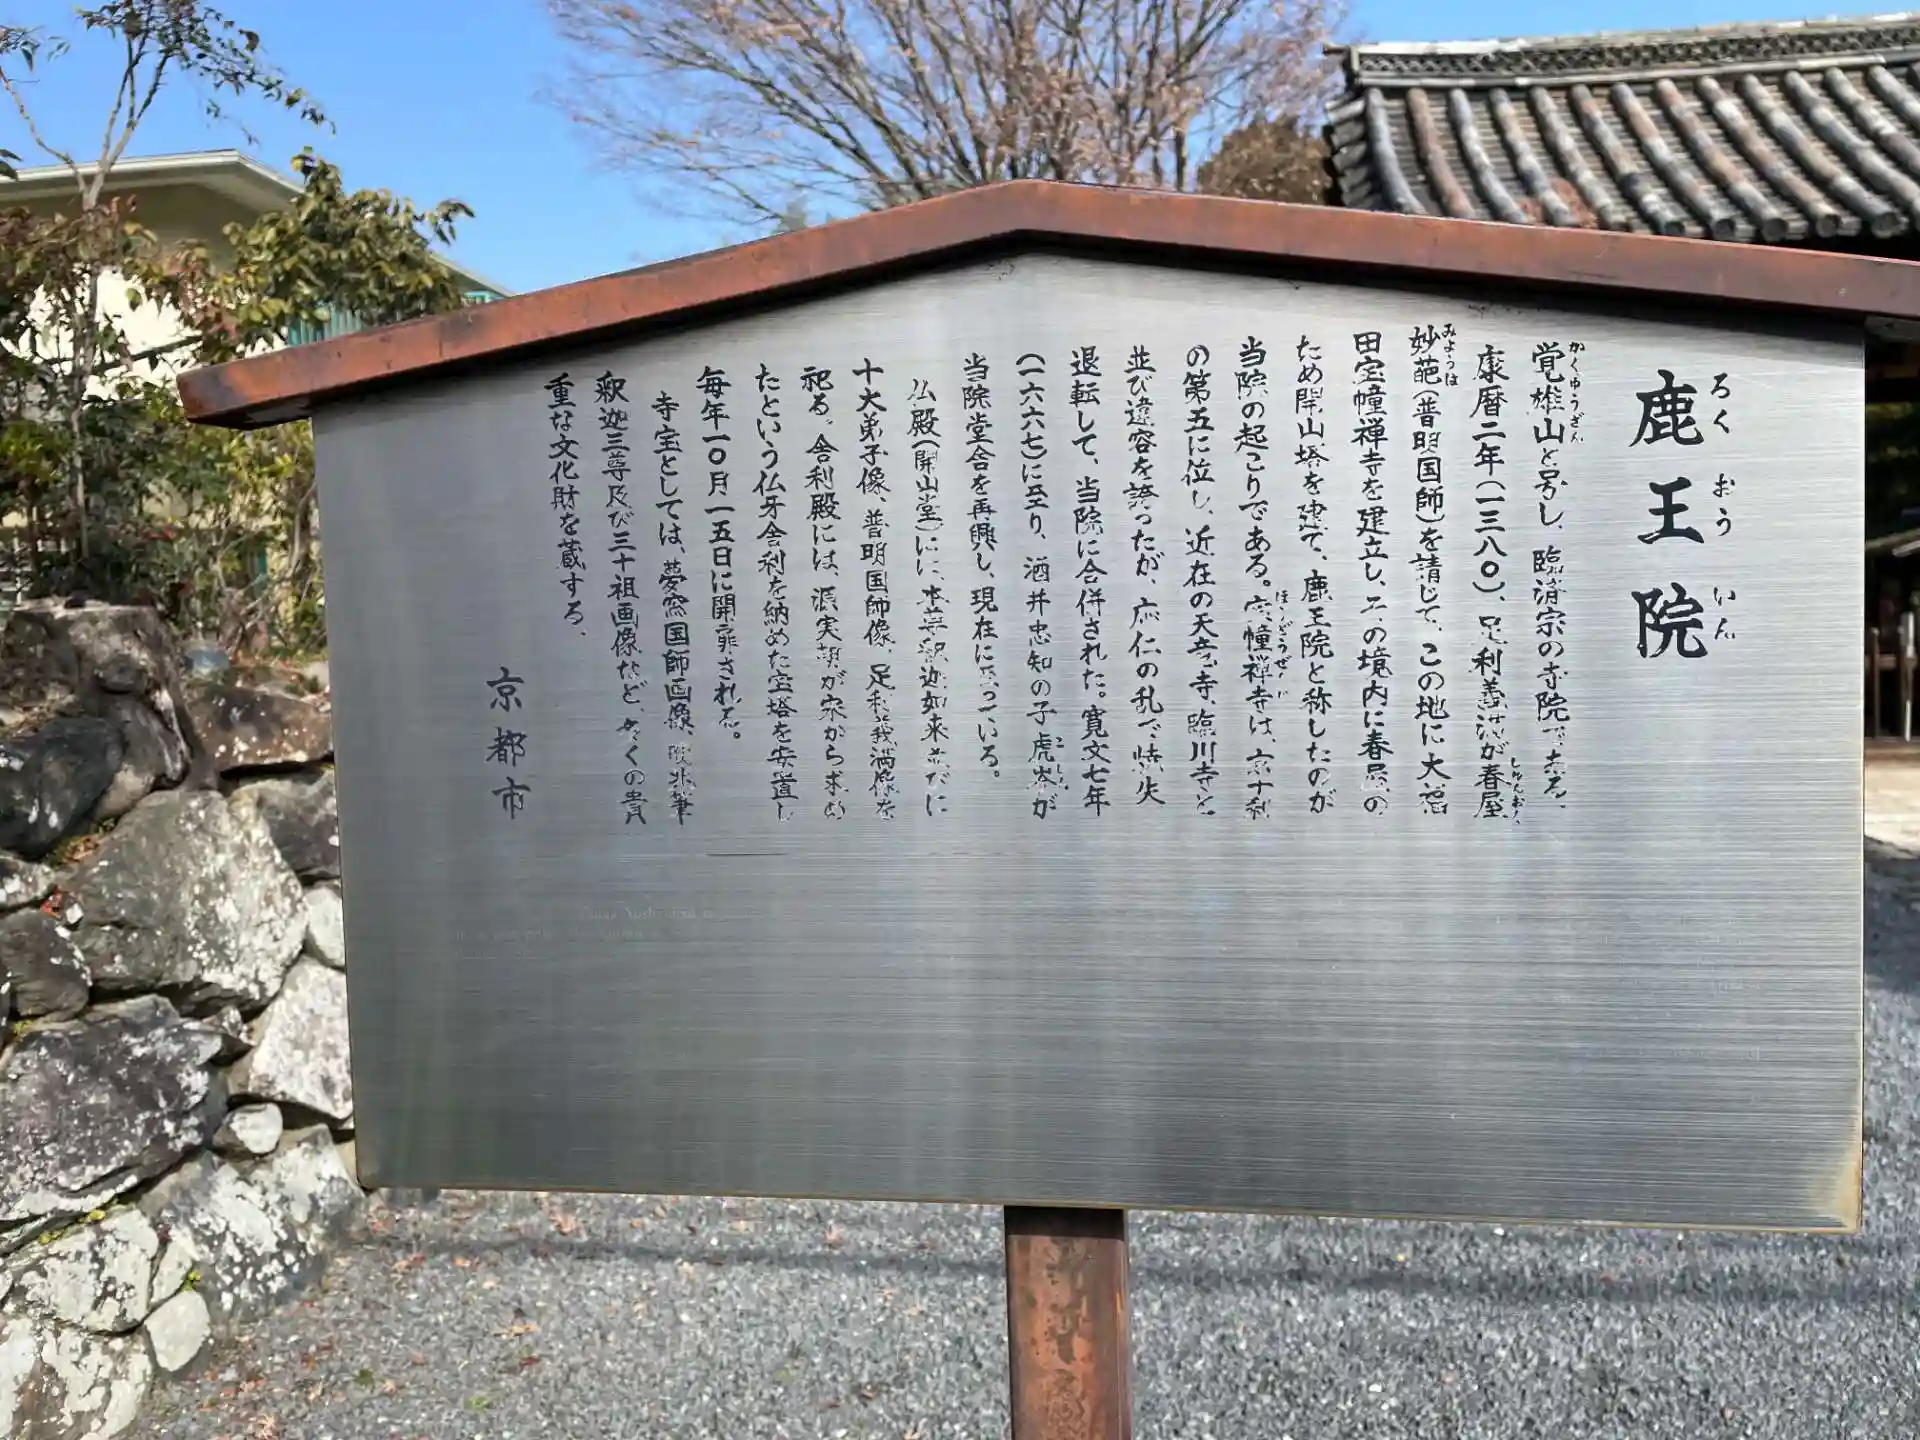 鹿王院
ろくおういん
覚雄山と号し、臨済宗の寺院である。
かくゆうざん
康暦二年(一三八〇)、足利義満が春屋
しゅんおく
妙葩(普明国師)を請じて、この地に大福
みょうは
田宝幢禅寺を建立し、その境内に春屋の
ため開山塔を建て、鹿王院と称したのが
当院の起こりである。宝幢禅寺は、京十刹
ほうどうぜんじ
の第五に位し、近在の天龍寺、臨川寺と
並び違容を誇ったが、応仁の乱で焼失
退転して、当院に合併された。寛文七年
(一六六七)に至り、酒井忠知の子虎岑が
こしん
当院堂舎を再興し、現在に至っている。
仏殿(開山堂)にに、本尊釈迦如来並びに
十大弟子像、普明国師像、足利義満像を
祀る。舎利殿には、源実朝が宋から求め
たという仏牙舎利を納めた宝塔を安置し
毎年一〇月一五日に開扉される。
寺宝としては、夢窓国師画像、殿兆筆
釈迦三尊及び三十祖画像など、多くの貴
重な文化財を蔵する、
京都市